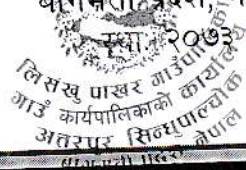 बागमती प्रदेश,
स्था. २०७३
लिसंखु पाखर गाउँपालिका
गाउँ कार्यपालिकाको कार्यालय
अत्तरपुर सिन्धुपाल्चोक
नेपाल